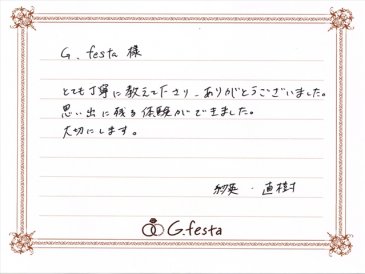 G.festa 様
とても丁寧に教えて下さり、ありがとうございました。
思い出に残る体験ができました。
大切にします。
・直樹
G.festa